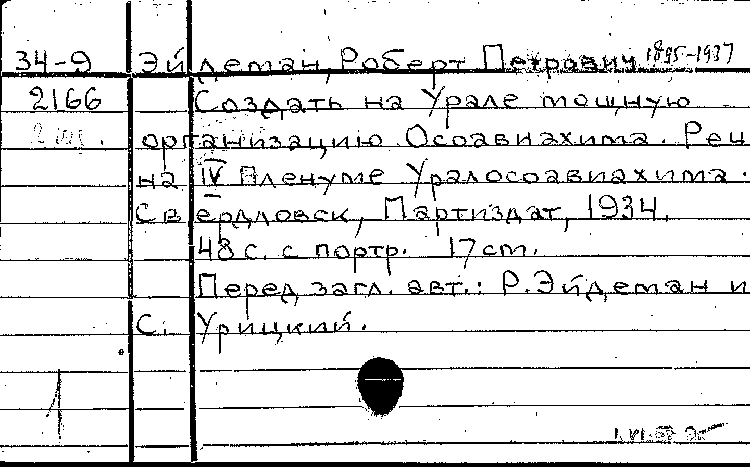 34-9 Эйдеман, Роберт Петрович 1895-1937
2166 Создать на Урале мощную
организацию Осоавиахима. Реч
на IV Пленуме Уралосоавиахима.
Свердловск, Партиздат, 1934.
48 с. с портр. 17 cm.
Перед загл. авт.: Р. Эйдеман и
С. Урицкий.
1